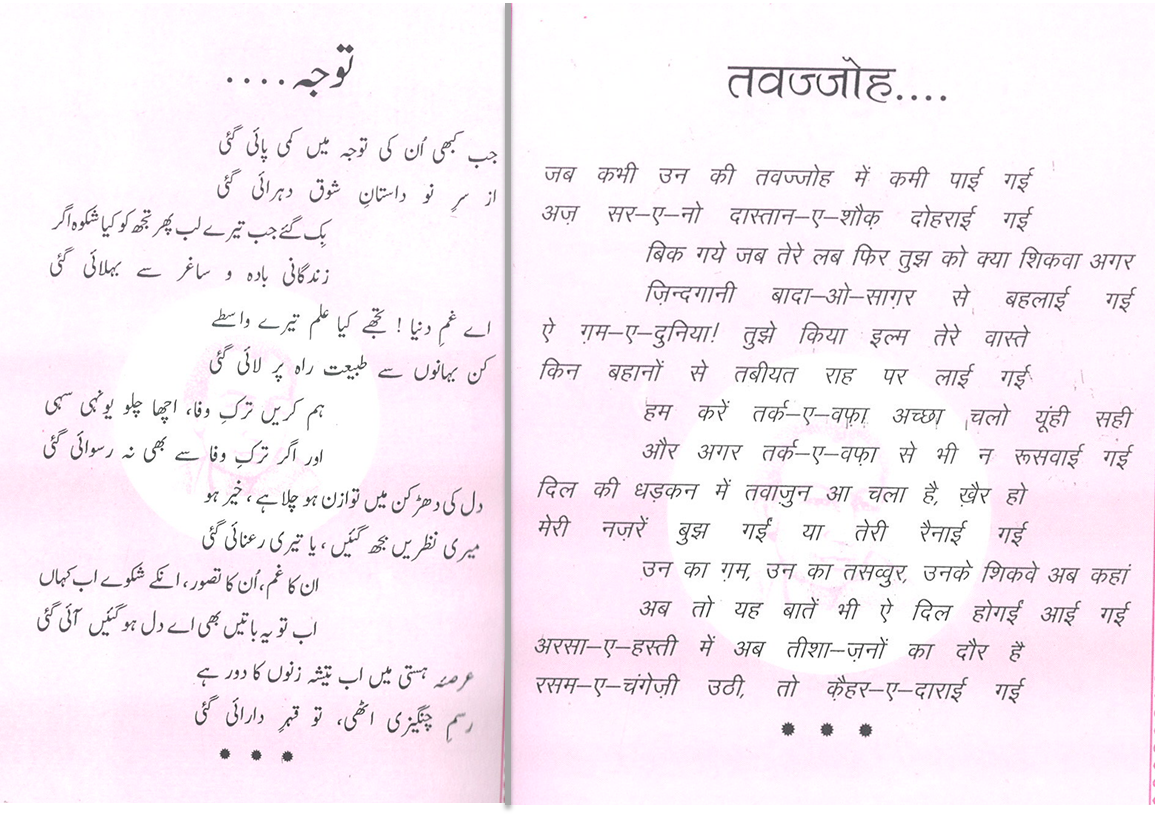 توجہ....
جب کبھی اُن کی توجہ میں کمی پائی گئی
از سرِ نو داستانِ شوق دہرائی گئی
بِک گئے جب تیرے لب پھر تجھ کو کیا شکوہ اگر
زندگانی بادہ و ساغر سے بہلائی گئی
اے غمِ دنیا ! تجھے کیا علم تیرے واسطے
کن بہانوں سے طبیعت راہ پر لائی گئی
ہم کریں ترکِ وفا، اچھا چلو یونہی سہی
اور اگر ترکِ وفا سے بھی نہ رسوائی گئی
دل کی دھڑکن میں توازن ہو چلا ہے، خیر ہو
میری نظریں بجھ گئیں، یا تیری رعنائی گئی
ان کا غم، اُن کا تصور، انکے شکوے اب کہاں
اب تو یہ باتیں بھی اے دل ہو گئیں آئی گئی
عرصۂ ہستی میں اب تیشہ زنوں کا دور ہے
رسمِ چنگیزی اٹھی، تو قہرِ دارائی گئی
तवज्जोह....
जब कभी उन की तवज्जोह में कमी पाई गई
अज़ सर–ए–नो दास्तान–ए–शौक़ दोहराई गई
बिक गये जब तेरे लब फिर तुझ को क्या शिकवा अगर
ज़िन्दगानी बादा–ओ–साग़र से बहलाई गई
ऐ ग़म–ए–दुनिया! तुझे किया इल्म तेरे वास्ते
किन बहानों से तबीयत राह पर लाई गई
हम करें तर्क–ए–वफ़ा अच्छा चलो यूंही सही
और अगर तर्क–ए–वफ़ा से भी न रूसवाई गई
दिल की धड़कन में तवाज़ुन आ चला है, ख़ैर हो
मेरी नज़रें बुझ गईं या तेरी रैनाई गई
उन का ग़म, उन का तसव्वुर, उनके शिकवे अब कहां
अब तो यह बातें भी ऐ दिल होगईं आई गई
अरसा–ए–हस्ती में अब तीशा–ज़नों का दौर है
रसम–ए–चंगेज़ी उठी, तो क़ैहर–ए–दाराई गई